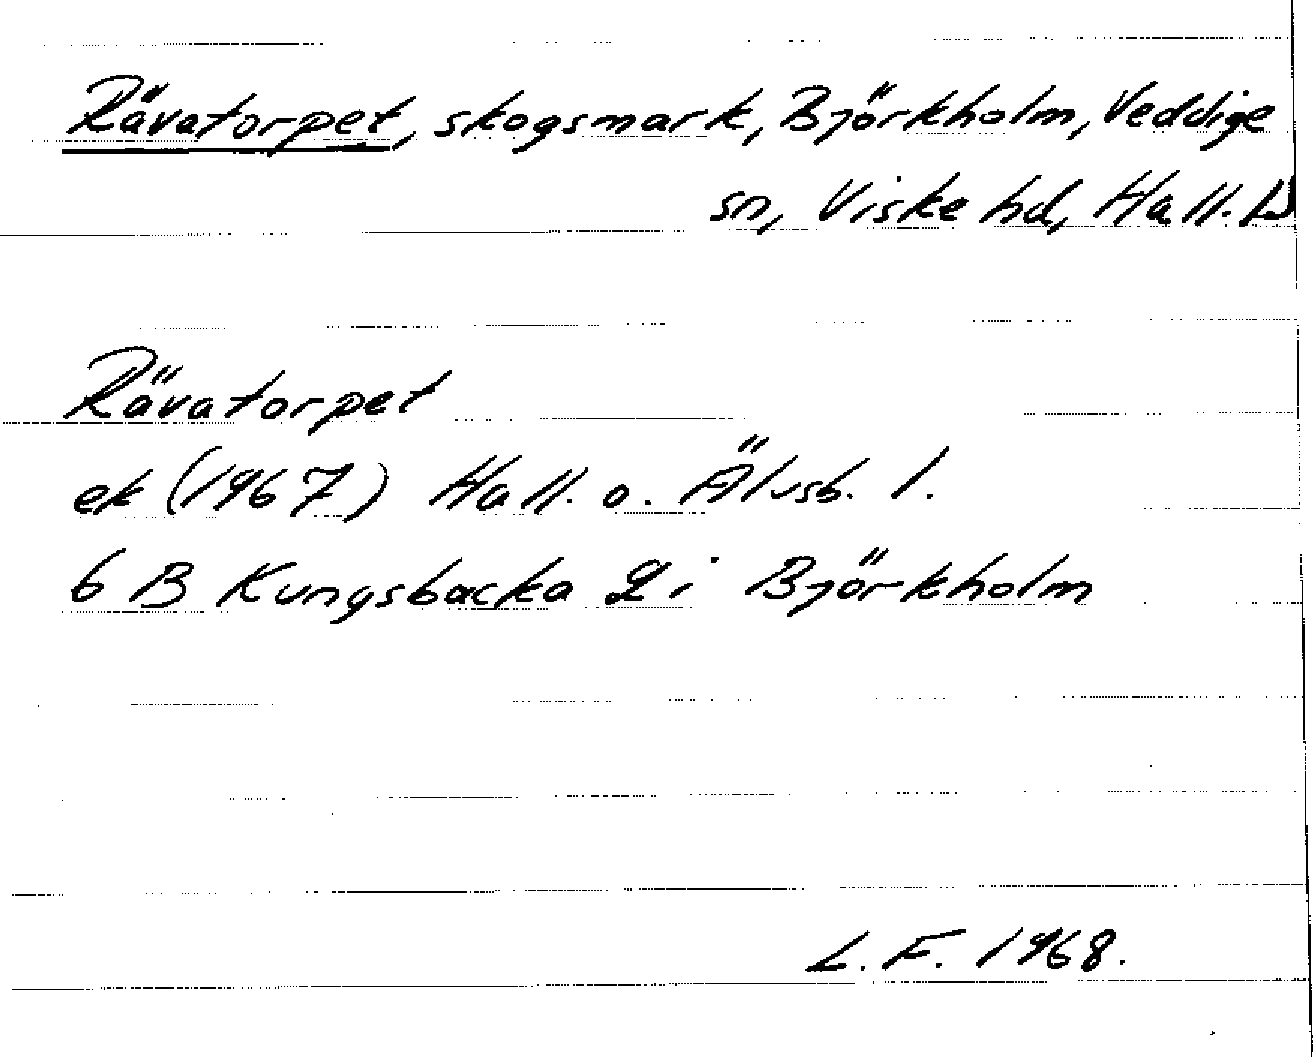 Rävatorpet, skogsmark, Björkholm, Veddige
sn, Viske hd, Hall. l.
Rävatorpet
ek (1967) Hall. o. Älvsb. l.
6 B Kungsbacka 2 i Björkholm
L. F. 1968.